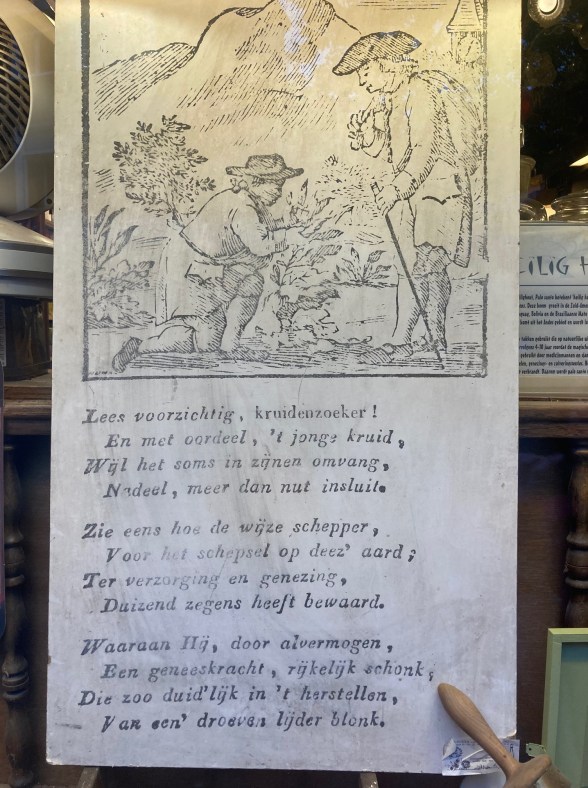 Lees voorzichtig, kruidenzoeker!
En met oordeel, 't jonge kruid,
Wijl het soms in zijnen omvang,
Nadeel, meer dan nut insluit.
Zie eens hoe de wijze schepper,
Voor het schepsel op deez' aard;
Ter verzorging en genezing,
Duizend zegens heeft bewaard.
Waaraan Hij, door alvermogen,
Een geneeskracht, rijkelijk schonk;
Die zoo duid'lijk in 't herstellen,
Van een' droeven lijder blonk.
EILIG H